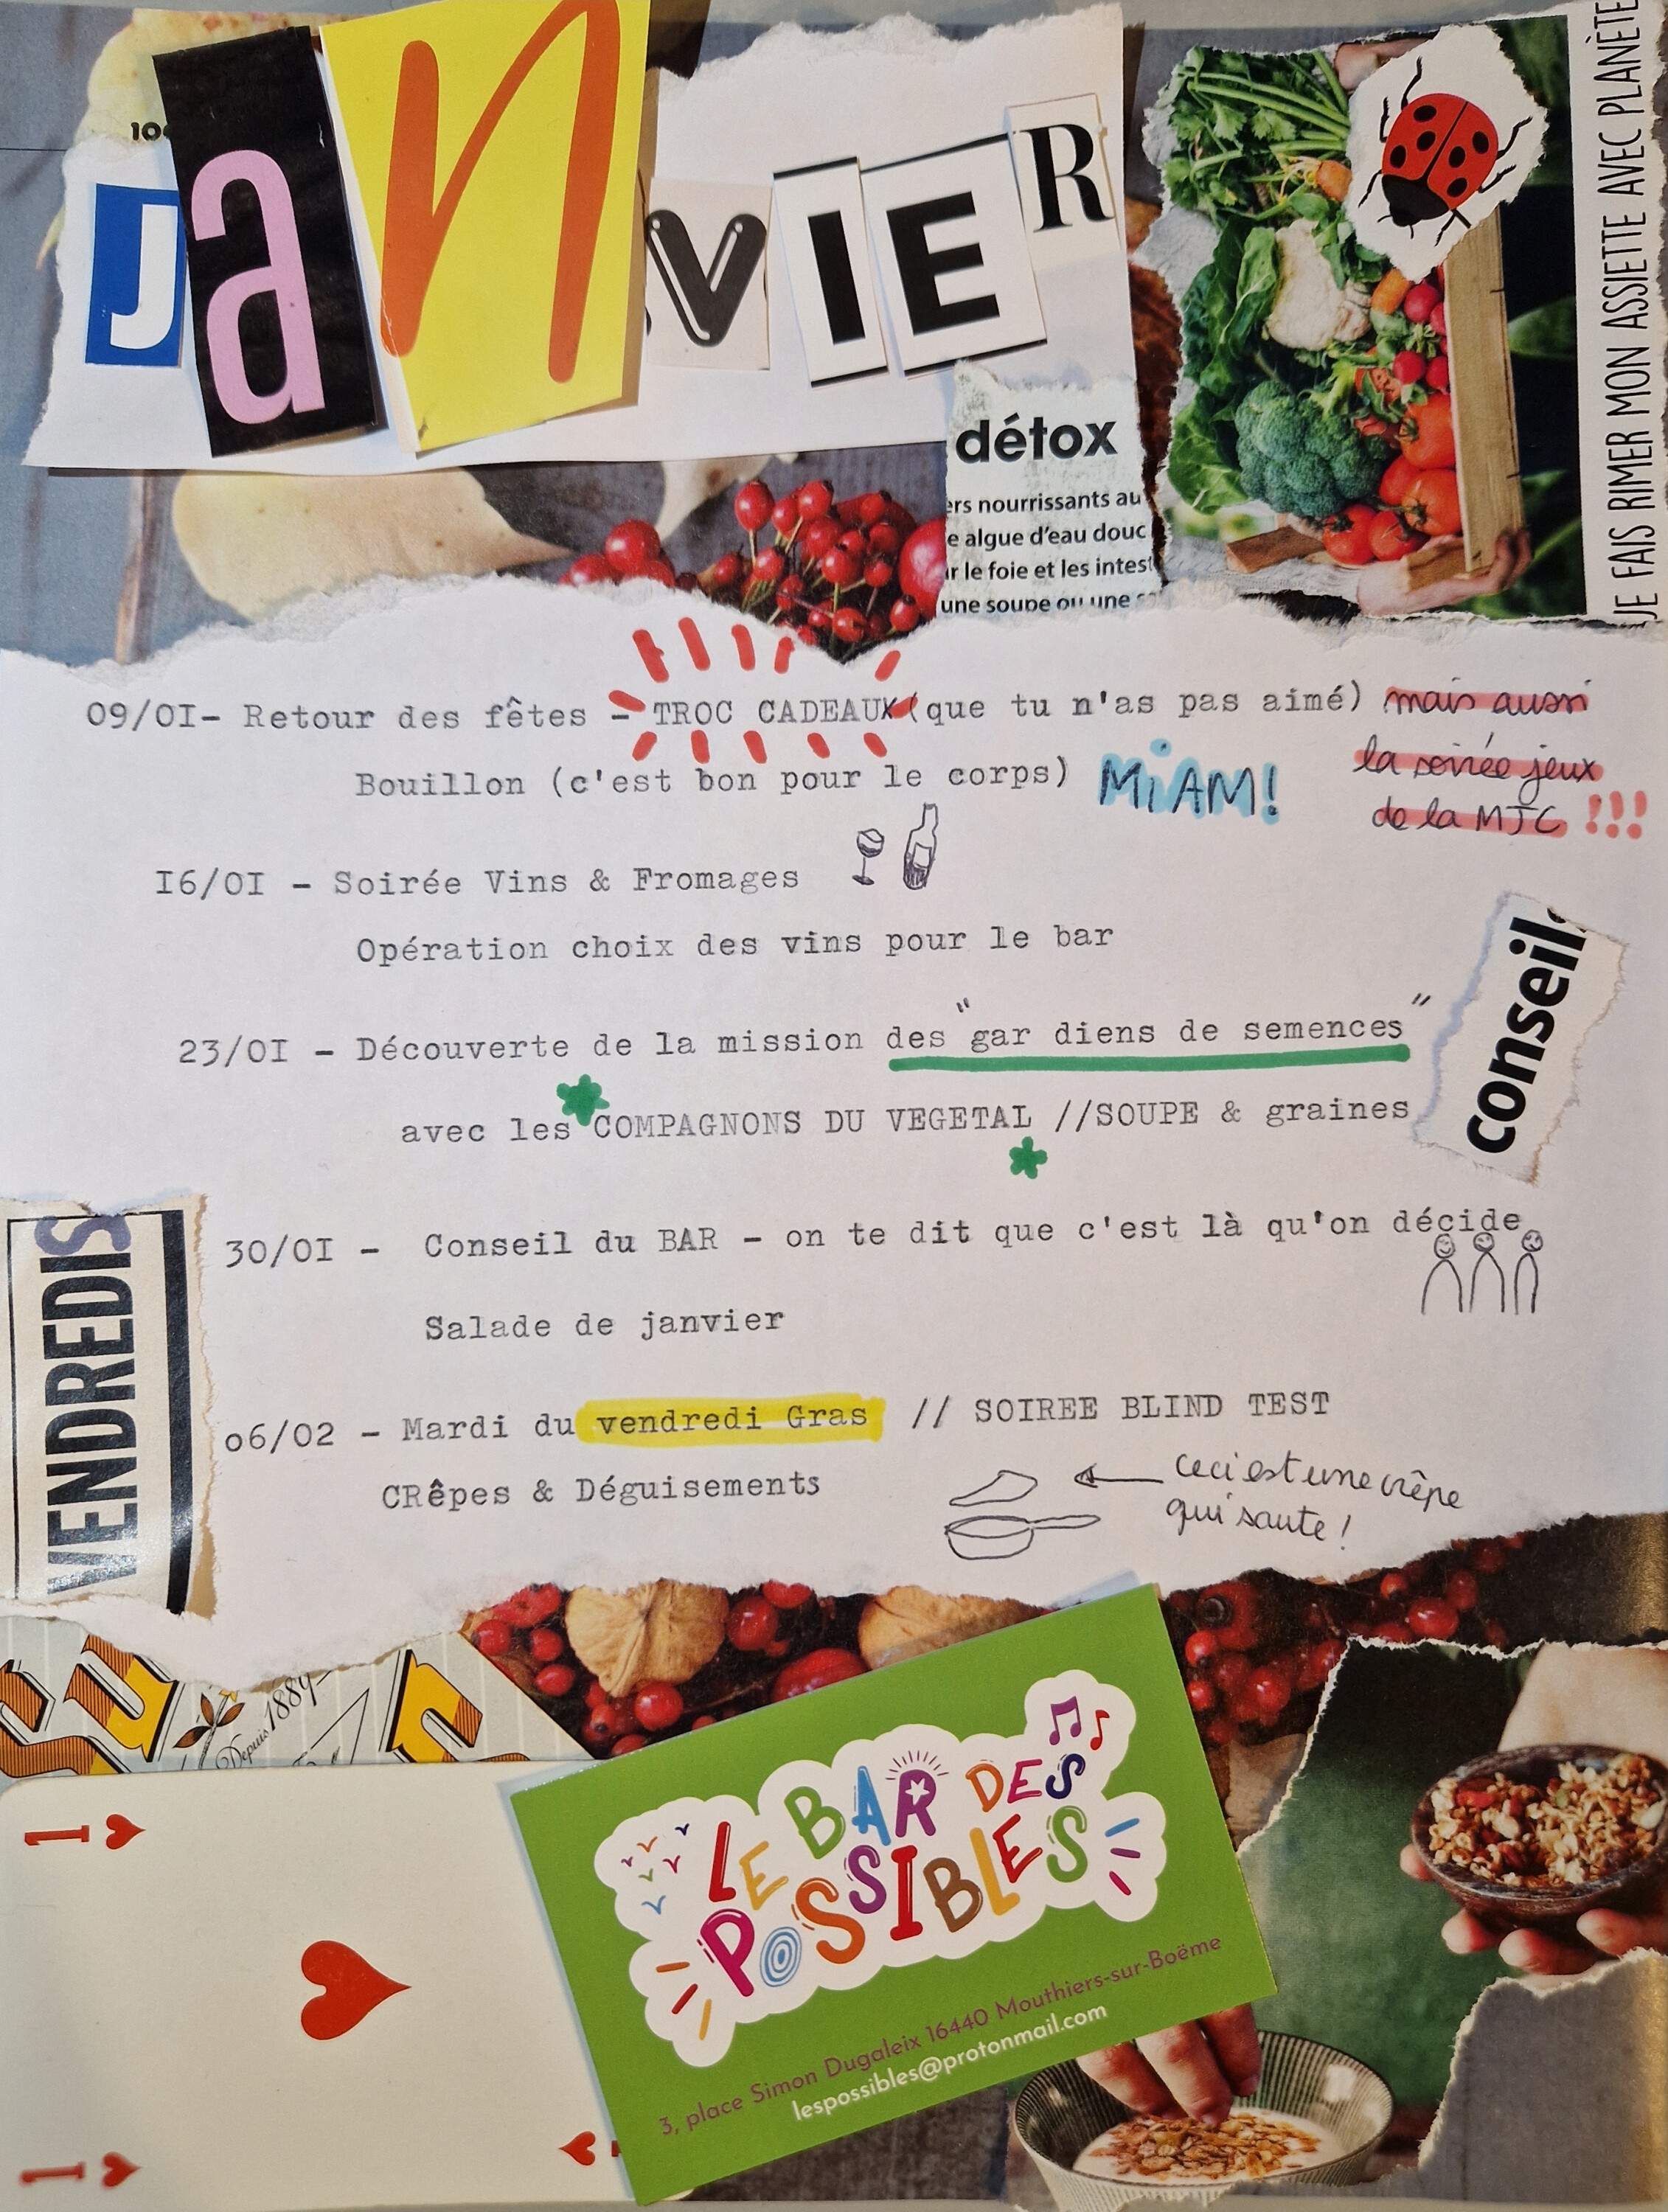 100
JaNVIER
JE FAIS RIMER MON ASSIETTE AVEC PLANÈTE
détox
ers nourrissants au
e algue d'eau douc
r le foie et les intest
une soupe ou une
09/0I- Retour des fêtes - TROC CADEAUX (que tu n'as pas aimé) mais aussi
la soirée jeux
de la MJC !!!
Bouillon (c'est bon pour le corps) MiAM!
I6/0I - Soirée Vins & Fromages
Opération choix des vins pour le bar
conseil
23/0I - Découverte de la mission des "gar diens de semences"
avec les COMPAGNONS DU VEGETAL //SOUPE & graines
VENDREDIS
30/0I - Conseil du BAR - on te dit que c'est là qu'on décide
Salade de janvier
o6/02 - Mardi du vendredi Gras // SOIREE BLIND TEST
CRêpes & Déguisements
ceci est une crêpe
qui saute !
Su
Depuis 1889
1
LE BAR DES
POSSIBLES
3, place Simon Dugaleix 16440 Mouthiers-sur-Boëme
lespossibles@protonmail.com
1